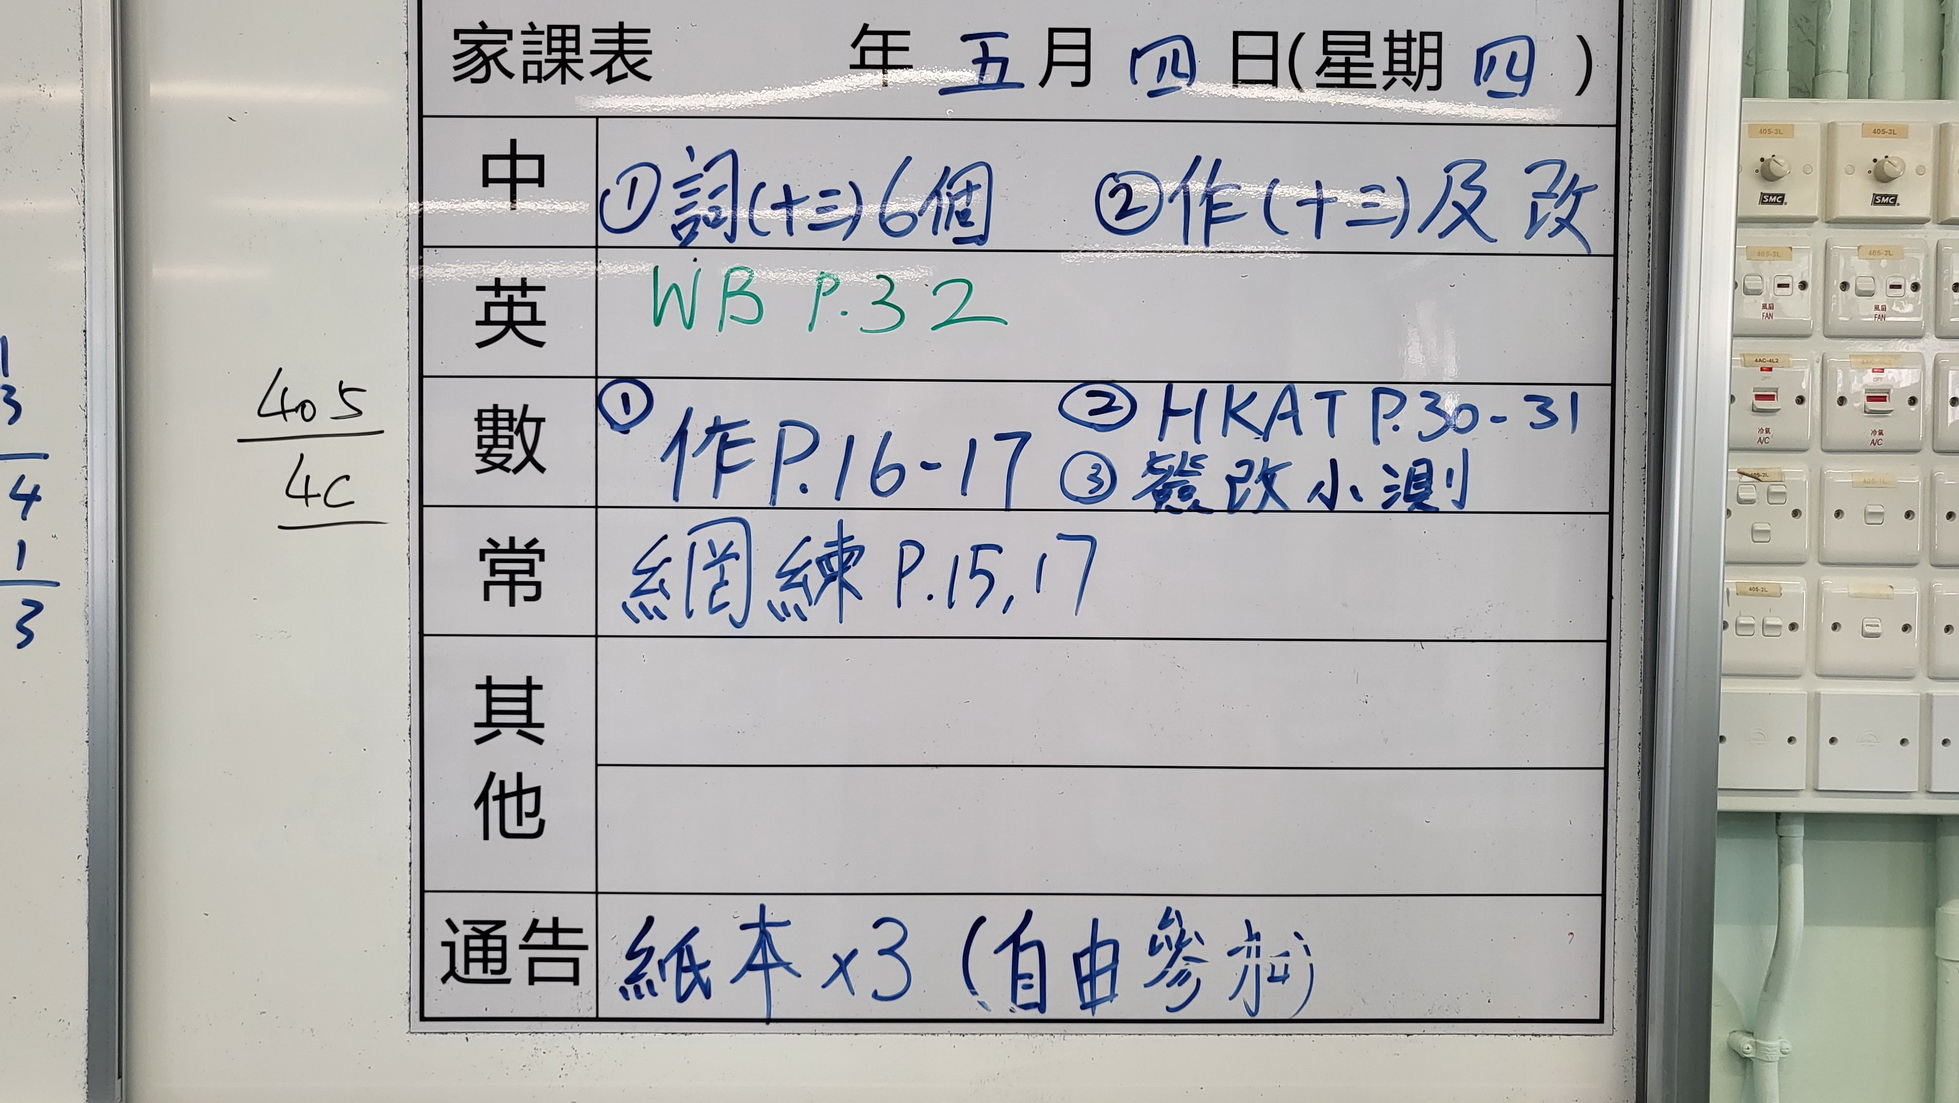 家課表 年 五 月 四 日(星期 四 )
中 ①詞(十三)6個 ②作(十三)及改
英 WB P.32
數 ①作P.16-17 ②HKAT P.30-31
③簽改小測
常 網練 P.15,17
其他
通告 紙本x3 (自由參加)
405
4C
1
3
4
1
3
405-3L
405-3L
SMC
SMC
405-3L
405-3L
風扇
FAN
風扇
FAN
4AC-4L2
冷氣
A/C
冷氣
A/C
405-2L